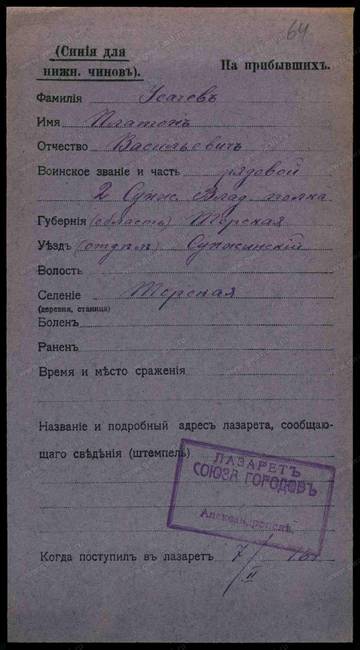 64
(Синія для
нижн. чиновъ).
На прибывшихъ.
Фамилія Усачевъ
Имя Платонъ
Отчество Васильевичъ
Воинское званіе и часть рядовой
2 Сунж. Влад. полка
Губернія (область) Терская
Уѣздъ (отдѣлъ) Сунженскій
Волость
Селеніе Терская
(деревня, станица)
Боленъ
Раненъ
Время и мѣсто сраженія
Названіе и подробный адресъ лазарета, сообщаю-
щаго свѣдѣнія (штемпель)
ЛАЗАРЕТЪ
СОЮЗА ГОРОДОВЪ
Когда поступилъ въ лазаретъ 7/II